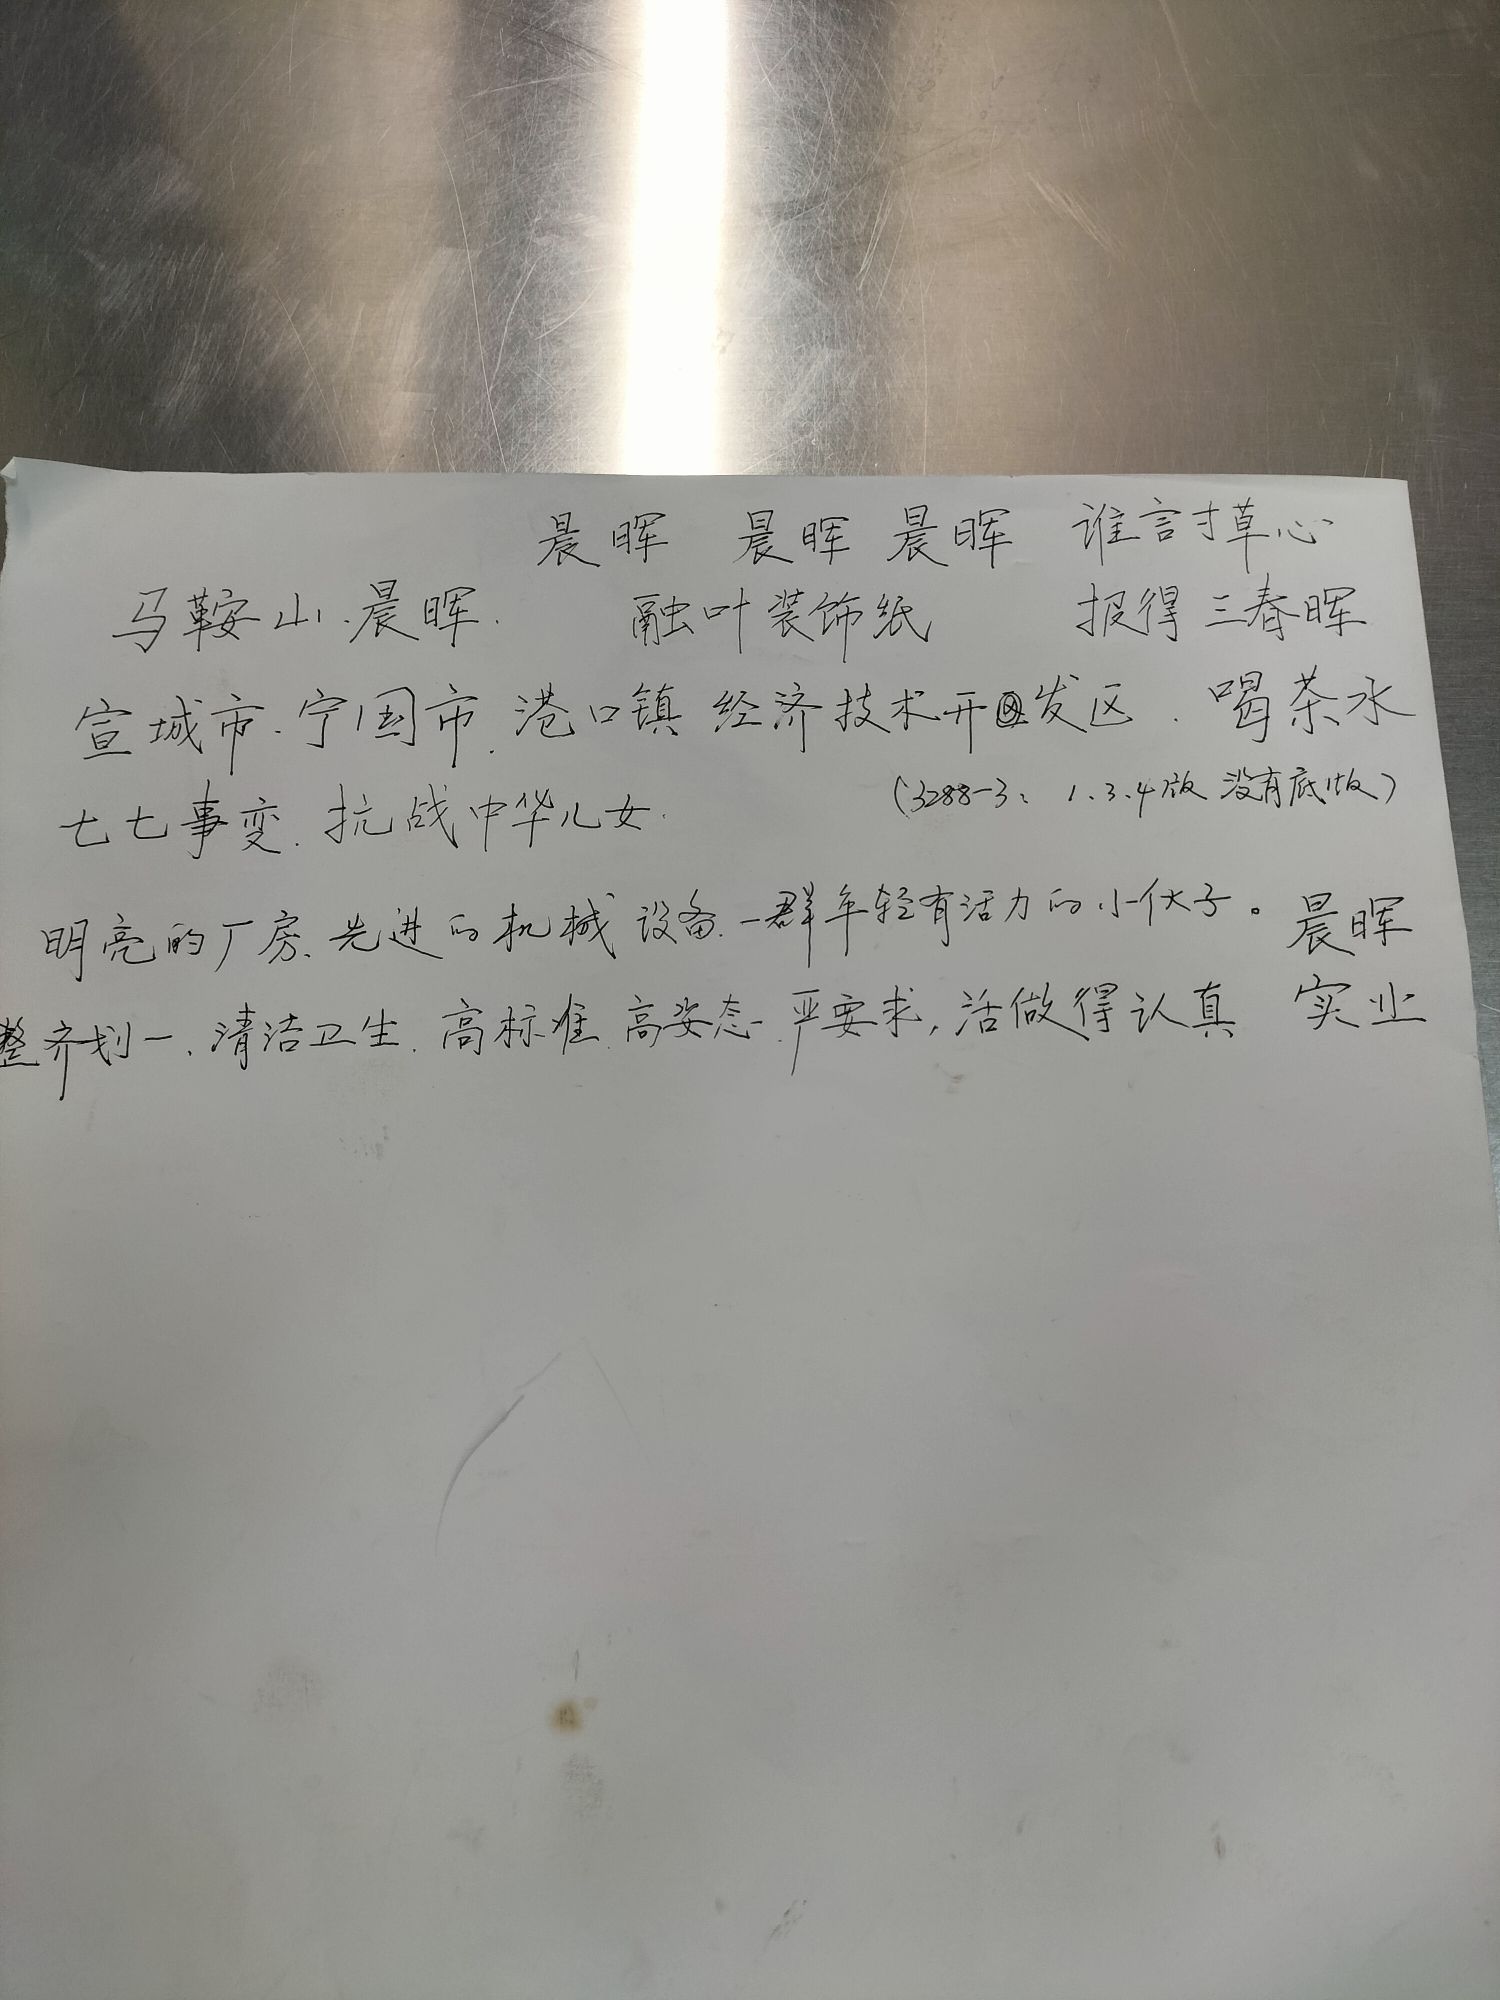 晨晖 晨晖 晨晖 谁言寸草心
马鞍山、晨晖. 融叶装饰纸 报得三春晖
宣城市、宁国市、港口镇 经济技术开发区、喝茶水
七七事变、抗战中华儿女. (3288-3: 1、3、4版 没有底版)
明亮的厂房、先进的机械设备、一群年轻有活力的小伙子。 晨晖
整齐划一、清洁卫生、高标准、高姿态、严要求,活做得认真 实业